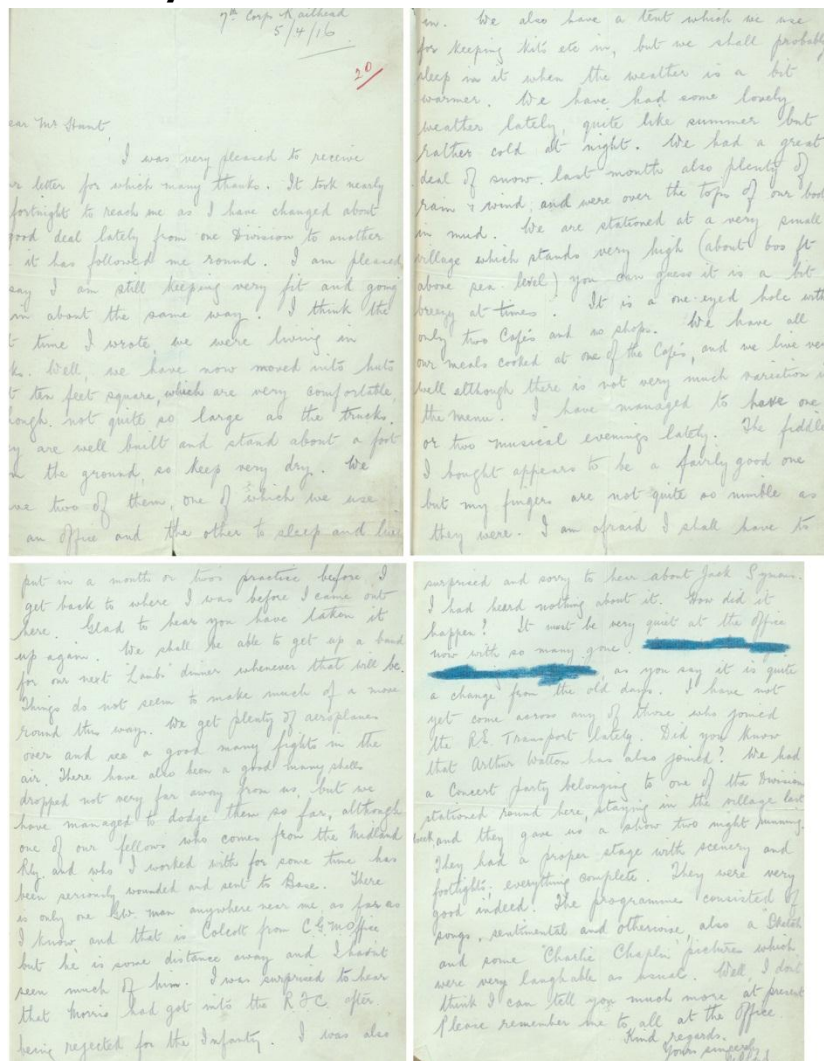 7th Corps Railhead
5/4/16
20
ear Mr Hunt,
I was very pleased to receive
r letter for which many thanks. It took nearly
fortnight to reach me as I have changed about
good deal lately from one Division to another
it has followed me round. I am pleased
say I am still keeping very fit and going
in about the same way. I think the
t time I wrote we were living in
ks. Well, we have now moved into huts
t ten feet square, which are very comfortable,
hough not quite so large as the trucks.
y are well built and stand about a foot
m the ground, so keep very dry. We
ve two of them, one of which we use
an office and the other to sleep and live
in. We also have a tent which we use
for keeping kits etc in, but we shall probably
sleep in it when the weather is a bit
warmer. We have had some lovely
weather lately, quite like summer but
rather cold at night. We had a great
deal of snow last month also plenty of
rain & wind, and were over the tops of our boot
in mud. We are stationed at a very small
village which stands very high (about 600 ft
above sea-level) you can guess it is a bit
breezy at times. It is a one-eyed hole with
only two Cafés and no shops. We have all
our meals cooked at one of the Cafés, and we live ver
well although there is not very much variation i
the menu. I have managed to have one
or two musical evenings lately. The fiddle
I bought appears to be a fairly good one
but my fingers are not quite as nimble as
they were. I am afraid I shall have to
put in a month or two's practice before I
get back to where I was before I came out
here. Glad to hear you have taken it
up again. We shall be able to get up a band
for our next 'Lamb' dinner whenever that will be.
Things do not seem to make much of a move
round this way. We get plenty of aeroplanes
over and see a good many fights in the
air. There have also been a good many shells
dropped not very far away from us, but we
have managed to dodge them so far, although
one of our fellows who comes from the Midland
Rly. and who I worked with for some time has
been seriously wounded and sent to Base. There
is only one GW man anywhere near me as far as
I know and that is Colcott from C.G.M. Office
but he is some distance away and I hadn't
seen much of him. I was surprised to hear
that Morris had got into the RFC after
being rejected for the Infantry. I was also
surprised and sorry to hear about Jack Symons.
I had heard nothing about it. How did it
happen? It must be very quiet at the office
now with so many gone.
, as you say it is quite
a change from the old days. I have not
yet come across any of those who joined
the R.E. Transport lately. Did you know
that Arthur Watton has also joined? We had
a Concert party belonging to one of the Division
stationed round here, staying in the village last
week and they gave us a show two night running.
They had a proper stage with scenery and
footlights, everything complete. They were very
good indeed. The programme consisted of
songs, sentimental and otherwise, also a Sketch
and some 'Charlie Chaplin' pictures which
were very laughable as usual. Well, I don't
think I can tell you much more at present
Please remember me to all at the office.
Kind regards.
Yours sincerely